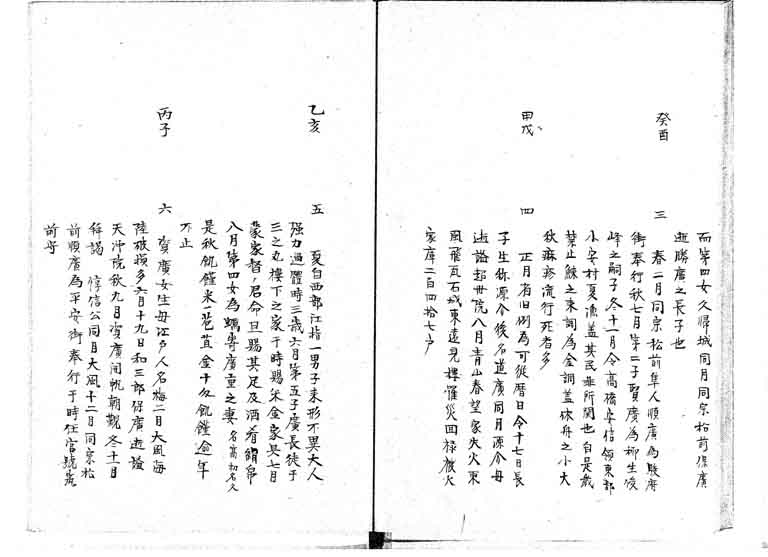 而第四女久帰城同月同宗松前保廣
逝勝廣之長子也
癸酉
三 春一月同宗松前隼人順廣為駿府
街奉行秋七月第二子賢廣為柳生俊
峰之嗣子冬十一月令高橋安信領東部
小安村夏漁盖其民無所関也自是歳
禁止鯡之束詞為金詞盖依舟之小大
秋麻疹流行死者多
甲戊
四 正月有旧例為可従暦日令十七日長
子生称源令後名道廣同月源令母
逝諡超世院八月青山春望家失火東
風飛瓦石城東遠見樓罹災回禄被火
家庫二百四拾七戸
乙亥
五 夏自西部江指一男子来形不異大人
强力過體時三歳六月第五子廣長徒于
三之丸樓下之家于時賜米金家具七月
蒙家督君命旦賜其足及酒肴絹帛
八月第四女為蠣崎廣重之妻 名高初名久
是秋飢饉米一苞直金十匁飢饉逾年
不止
丙子
六 資廣女生母江戸人名梅二月大風海
陸破損多六月十九日和三郎保廣逝諡
天沖院秋九月資廣開帆朝覲冬十一月
拜謁 惇信公同月大風十二月同宗松
前順廣為平安街奉行于時任官號筑
前守